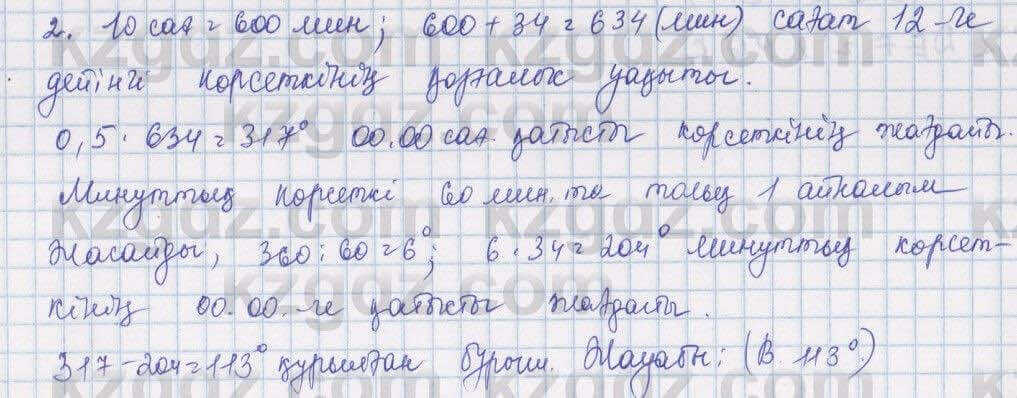 2. 10 сағ = 600 мин; 600 + 34 = 634 (мин) сағат 12-ге
дейінгі көрсеткінің қозғалыс уақыты.
0,5 · 634 = 317° 00.00 сағ. қатысты көрсеткінің жағдайы.
Минуттық көрсеткі 60 мин. та толық 1 айналым
жасайды, 360 : 60 = 6°; 6 · 34 = 204° минуттық көрсет-
кінің 00.00.-ге қатысты жағдайы.
317 - 204 = 113° құрылған бұрыш. Жауабы: (В. 113°)
kzgdz.com